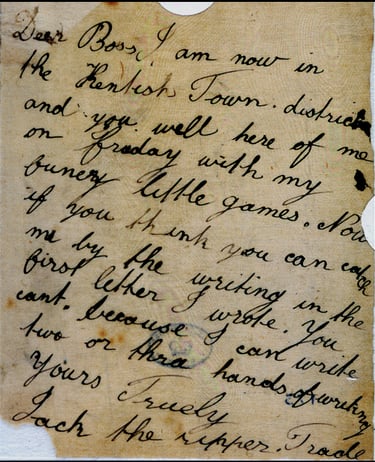 Deer Boss, I am now in
the Kentish Town. district
and you well here of me
on friday with my
funery little games. Now
if you think you can catch
me by the writing in the
first letter I wrote. You
cant. because I can write
two or thra hands of writing
Yours Truely
Jack the ripper. Trade